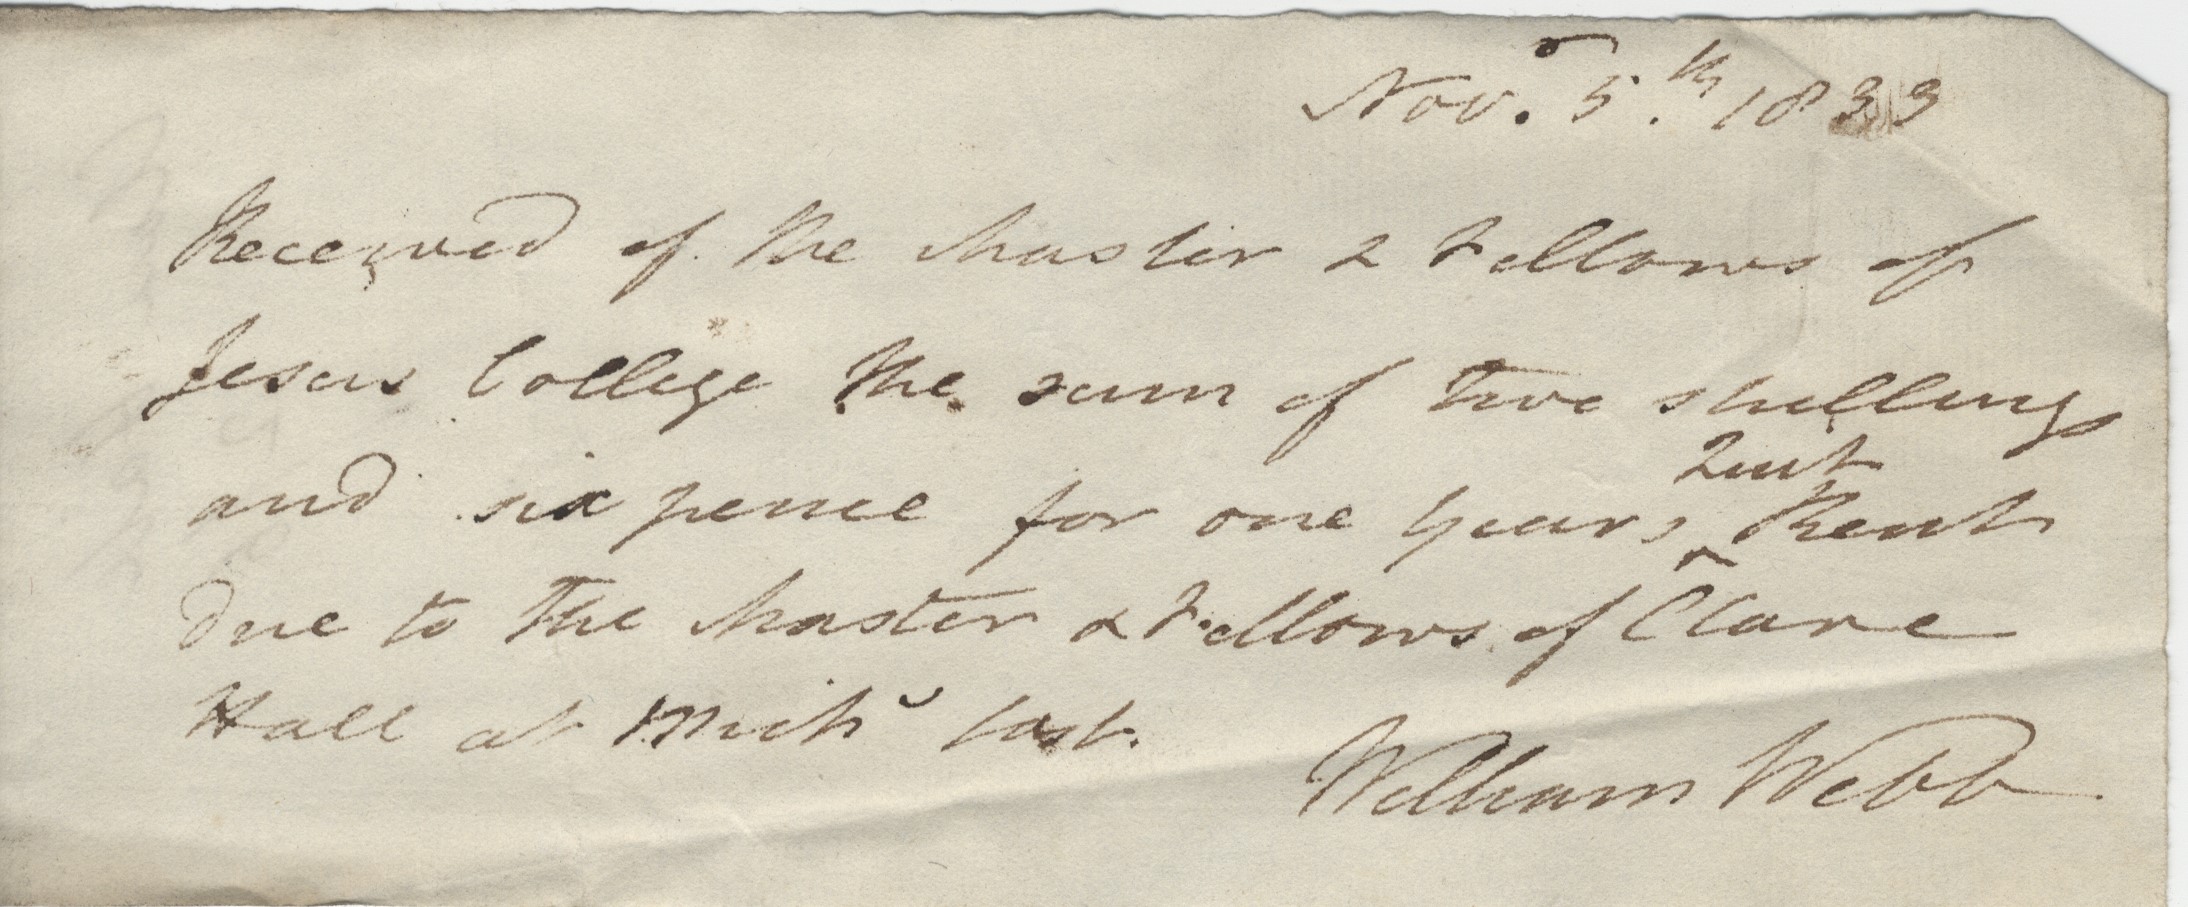 Nov.r 5.th 1833
Received of the Master & Fellows of
Jesus College the sum of two shillings
and six pence for one years ^Quit Rent
due to the Master & Fellows of Clare
Hall at Mich.s last.
William Webb